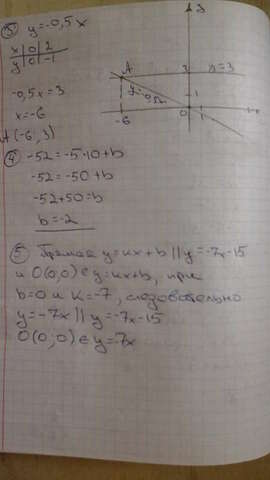 ③ y=-0,5x
x | 0 | 2
y | 0 | -1
-0,5x=3
x=-6
A(-6;3)
y
A
3
y=3
y=-0,5x
1
-6
0
1
④ -52=-5·10+b
-52=-50+b
-52+50=b
b=-2
⑤ Прямая y=kx+b || y=-7x-15
и O(0;0) ∈ y=kx+b, при
b=0 и k=-7, следовательно
y=-7x || y=-7x-15
O(0;0) ∈ y=-7x